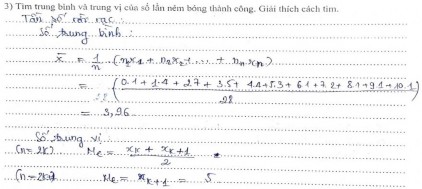 3) Tìm trung bình và trung vị của số lần ném bóng thành công. Giải thích cách tìm.
Tần số rời rạc:
Số trung bình:
x̄ = 1/n (n₁x₁ + n₂x₂ + ... + nₙxₙ)
= (0.1 + 1.4 + 2.7 + 3.5 + 4.4 + 5.3 + 6.1 + 7.2 + 8.1 + 9.1 + 10.1)/28
= 3,96
Số trung vị
(n = 2k) Me = (xₖ + xₖ₊₁)/2
(n = 2k+1) Me = xₖ₊₁ = 5